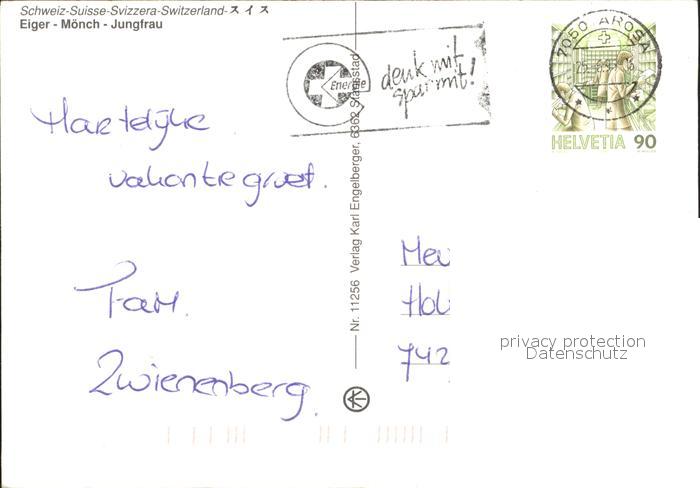 Schweiz-Suisse-Svizzera-Switzerland-スイス
Eiger - Mönch - Jungfrau
Energie
denk mit
spar mit!
7050 AROSA
HELVETIA 90
Hartelijke
vakantiegroet.
Fam.
Zwienenberg.
Nr. 11256 Verlag Karl Engelberger, 6362 Stansstad
Mev
Hol
742
privacy protection
Datenschutz